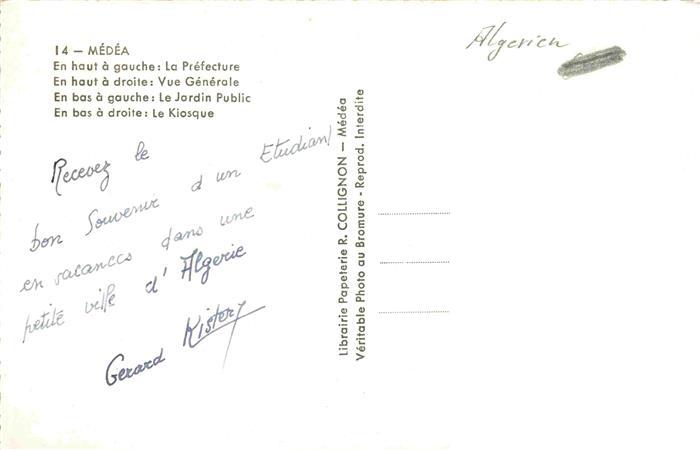 14 — MÉDÉA
En haut à gauche: La Préfecture
En haut à droite: Vue Générale
En bas à gauche: Le Jardin Public
En bas à droite: Le Kiosque
Recevez le
bon souvenir d'un Etudiant
en vacances dans une
petite ville d'Algérie
Gerard
Librairie Papeterie R. COLLIGNON — Médéa
Véritable Photo au Bromure - Reprod. Interdite
Algerien